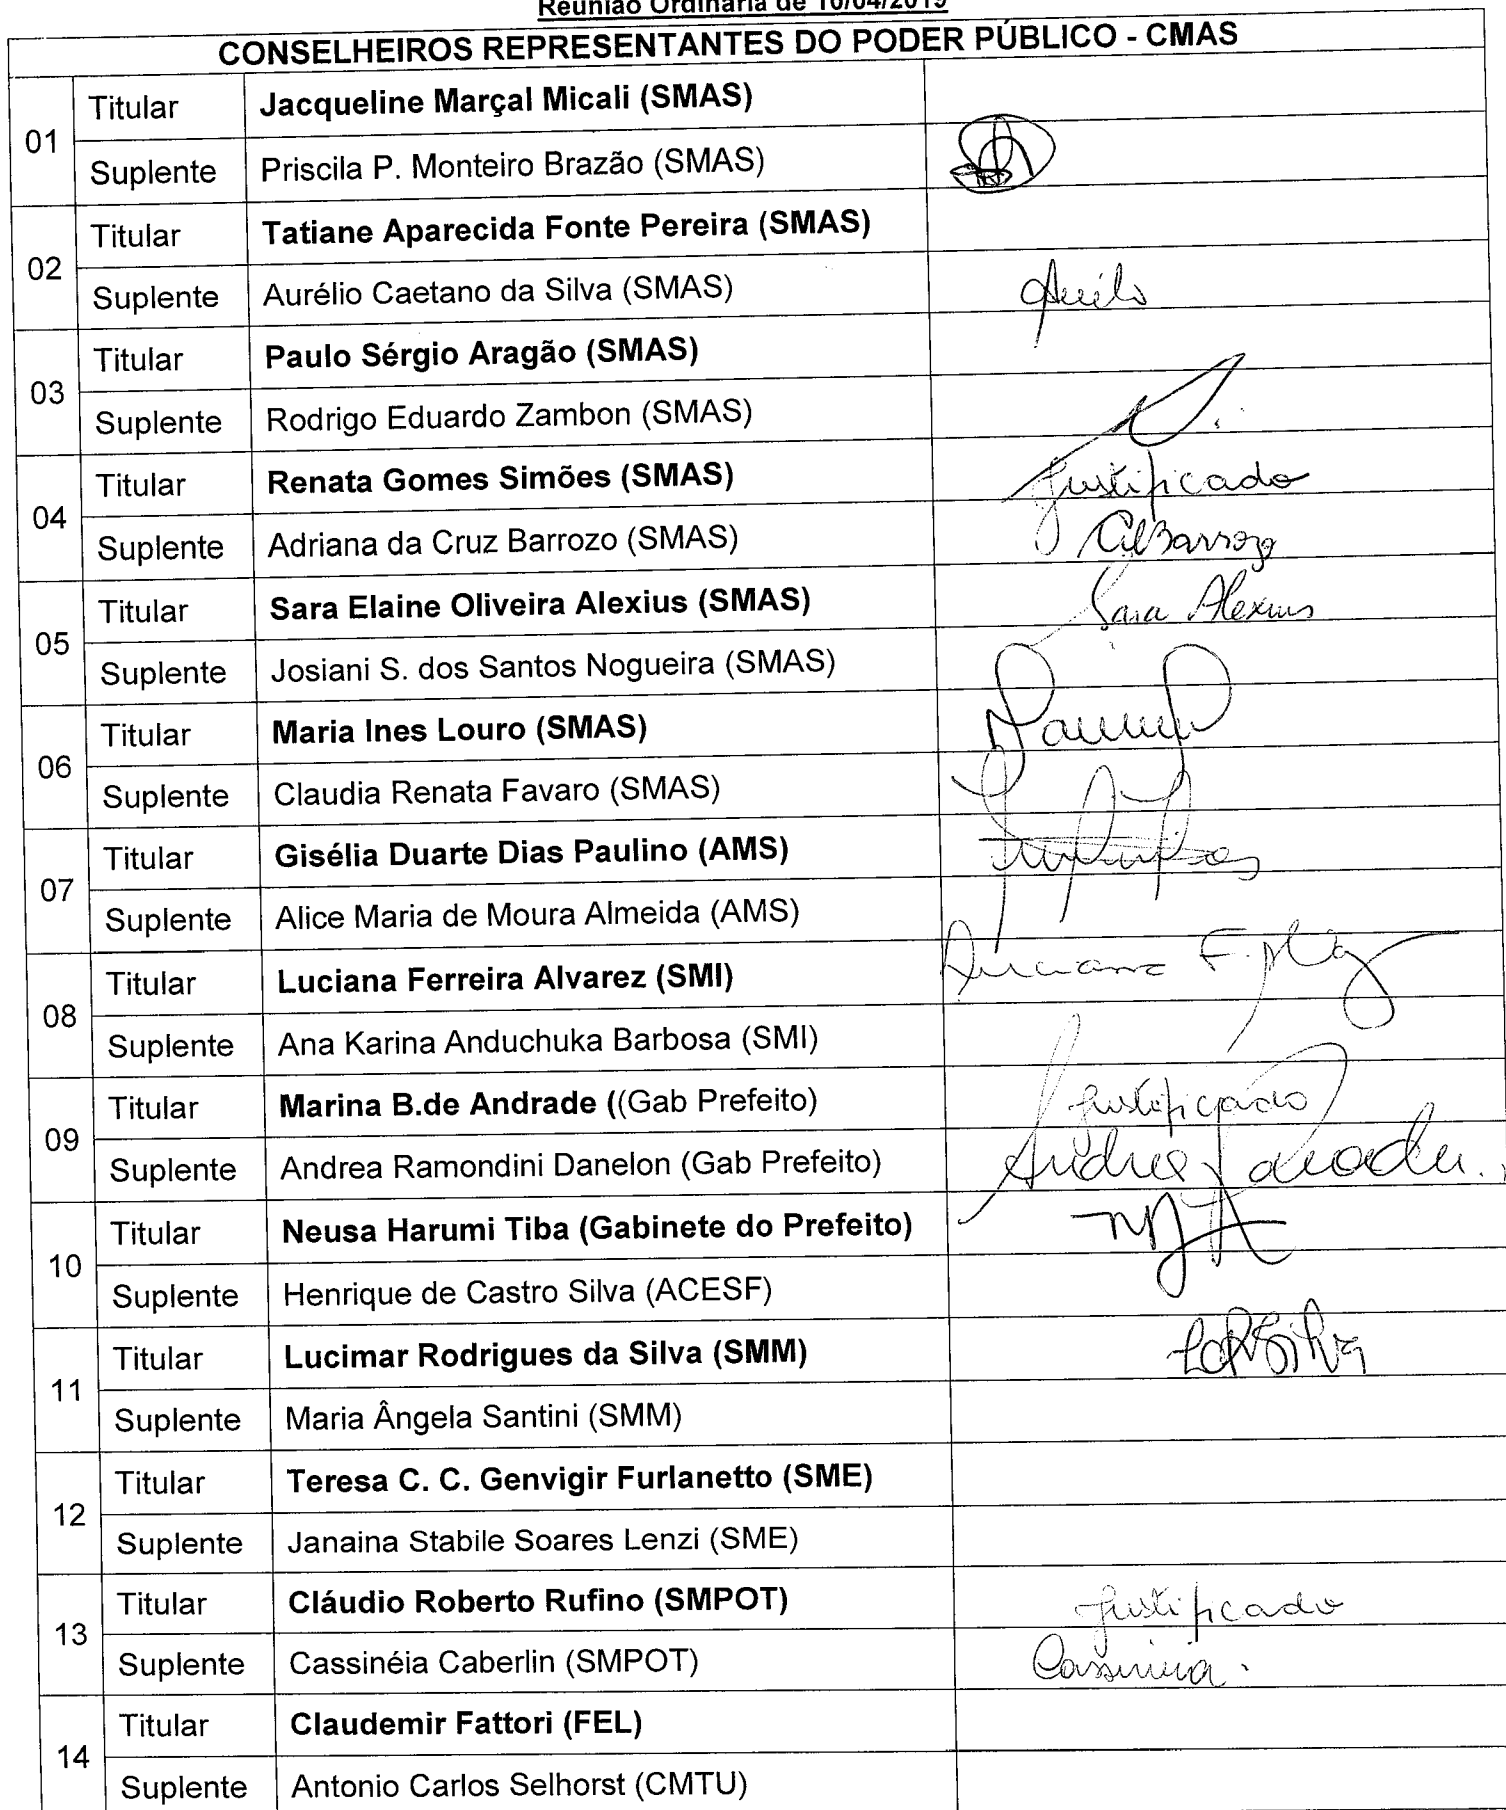 Reunião Ordinária de 10/04/2019
CONSELHEIROS REPRESENTANTES DO PODER PÚBLICO - CMAS
01 Titular Jacqueline Marçal Micali (SMAS)
Suplente Priscila P. Monteiro Brazão (SMAS)
02 Titular Tatiane Aparecida Fonte Pereira (SMAS)
Suplente Aurélio Caetano da Silva (SMAS)
03 Titular Paulo Sérgio Aragão (SMAS)
Suplente Rodrigo Eduardo Zambon (SMAS)
04 Titular Renata Gomes Simões (SMAS) Justificado
Suplente Adriana da Cruz Barrozo (SMAS) Barrozo
05 Titular Sara Elaine Oliveira Alexius (SMAS) Sara Alexius
Suplente Josiani S. dos Santos Nogueira (SMAS)
06 Titular Maria Ines Louro (SMAS)
Suplente Claudia Renata Favaro (SMAS)
07 Titular Gisélia Duarte Dias Paulino (AMS)
Suplente Alice Maria de Moura Almeida (AMS)
08 Titular Luciana Ferreira Alvarez (SMI) Luciana F.
Suplente Ana Karina Anduchuka Barbosa (SMI)
09 Titular Marina B.de Andrade ((Gab Prefeito) Justificado
Suplente Andrea Ramondini Danelon (Gab Prefeito) Andrea
10 Titular Neusa Harumi Tiba (Gabinete do Prefeito)
Suplente Henrique de Castro Silva (ACESF)
11 Titular Lucimar Rodrigues da Silva (SMM) LdRSilva
Suplente Maria Ângela Santini (SMM)
12 Titular Teresa C. C. Genvigir Furlanetto (SME)
Suplente Janaina Stabile Soares Lenzi (SME)
13 Titular Cláudio Roberto Rufino (SMPOT) Justificado
Suplente Cassinéia Caberlin (SMPOT) Cassinéia
14 Titular Claudemir Fattori (FEL)
Suplente Antonio Carlos Selhorst (CMTU)